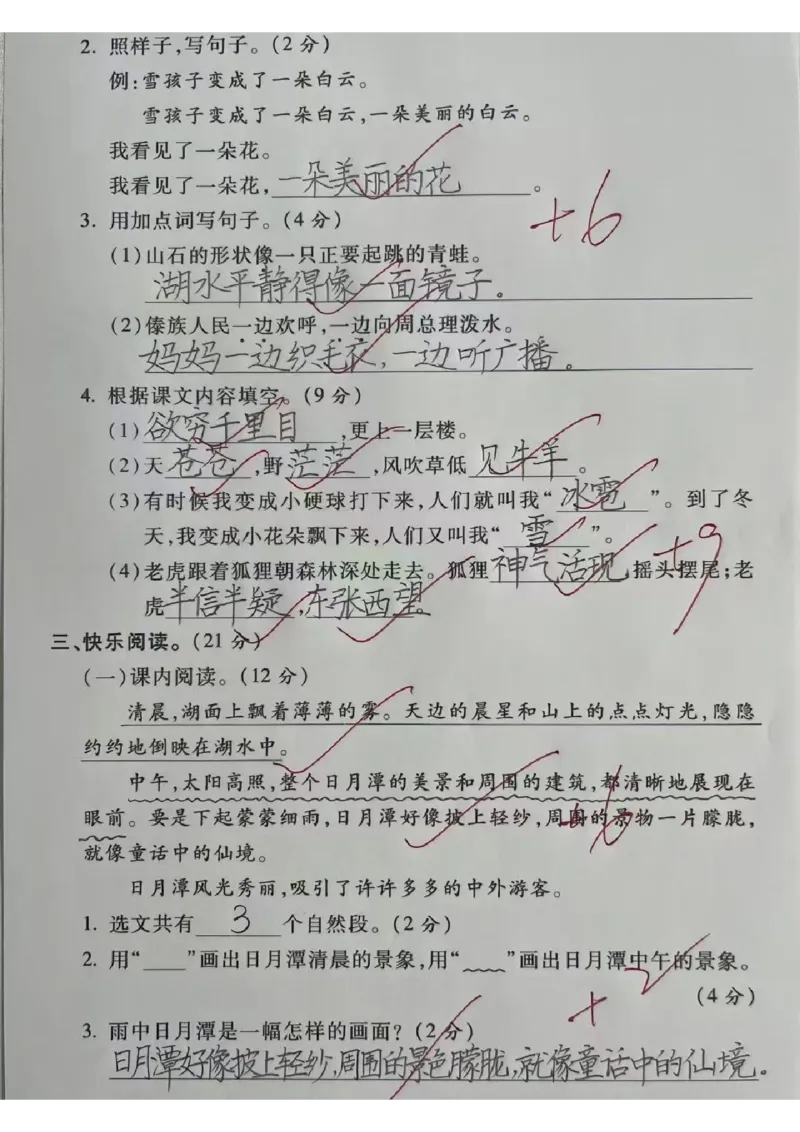 2. 照样子,写句子。(2分)
例:雪孩子变成了一朵白云。
雪孩子变成了一朵白云,一朵美丽的白云。
我看见了一朵花。
我看见了一朵花,一朵美丽的花。
+6
3. 用加点词写句子。(4分)
(1)山石的形状像一只正要起跳的青蛙。
湖水平静得像一面镜子。
(2)傣族人民一边欢呼,一边向周总理泼水。
妈妈一边织毛衣,一边听广播。
4. 根据课文内容填空。(9分)
(1)欲穷千里目,更上一层楼。
(2)天苍苍,野茫茫,风吹草低见牛羊。
(3)有时候我变成小硬球打下来,人们就叫我“冰雹”。到了冬
天,我变成小花朵飘下来,人们又叫我“雪”。
+9
(4)老虎跟着狐狸朝森林深处走去。狐狸神气活现,摇头摆尾;老
虎半信半疑,东张西望。
三、快乐阅读。(21分)
(一)课内阅读。(12分)
清晨,湖面上飘着薄薄的雾。天边的晨星和山上的点点灯光,隐隐
约约地倒映在湖水中。
中午,太阳高照,整个日月潭的美景和周围的建筑,都清晰地展现在
眼前。要是下起蒙蒙细雨,日月潭好像披上轻纱,周围的景物一片朦胧,
+6
就像童话中的仙境。
日月潭风光秀丽,吸引了许许多多的中外游客。
1. 选文共有3个自然段。(2分)
2. 用“____”画出日月潭清晨的景象,用“﹏﹏”画出日月潭中午的景象。
(4分)
+2
3. 雨中日月潭是一幅怎样的画面?(2分)
日月潭好像披上轻纱,周围的景色朦胧,就像童话中的仙境。